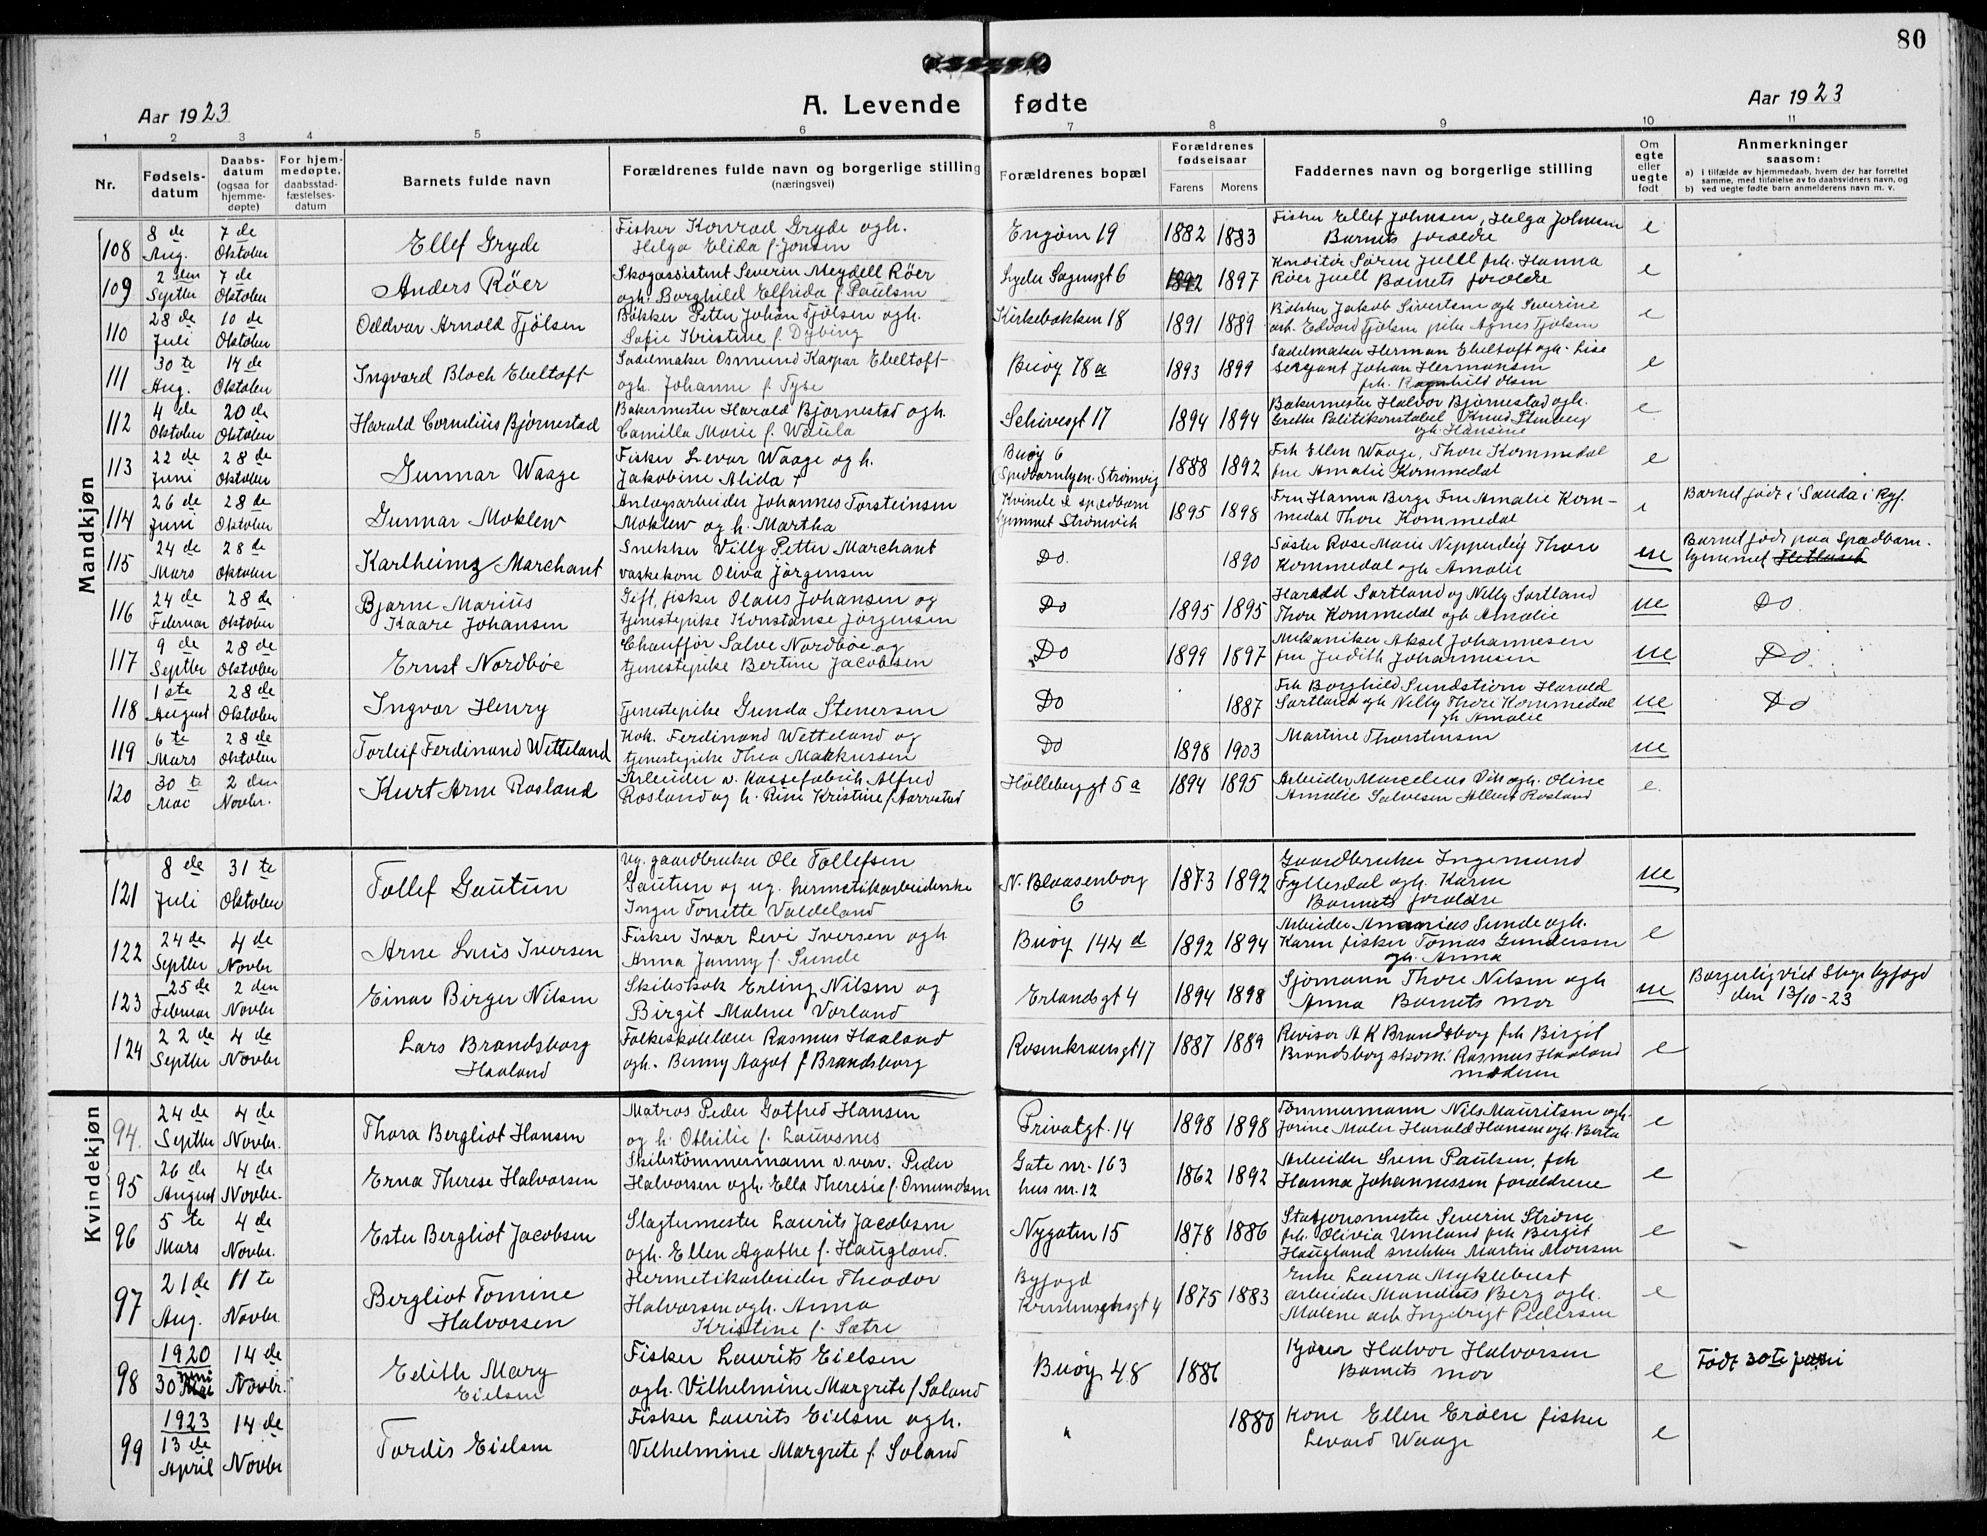 80
Aar 1923
A. Levende fødte
Aar 1923
1 2 3 4 5 6 7 8 9 10 11
Nr.
Fødsels-
datum
Daabs-
datum
(ogsaa for
hjemme-
døpte)
For hjem-
medøpte,
daabsstad-
fæstelses-
datum
Barnets fulde navn
Forældrenes fulde navn og borgerlige stilling
(næringsvei)
Forældrenes bopæl
Forældrenes
fødselsaar
Farens Morens
Faddernes navn og borgerlige stilling
Om
egte
eller
uegte
født
Anmerkninger
saasom:
a) i tilfælde av hjemmedaab, hvem der har forrettet
samme, med tilføielse av to daabsvidners navn, og
b) ved uegte fødte barn anmelderens navn m. v.
Mandkjøn
108 8de Aug. 7de Oktober Ellef Gryde
Fisker Konrad Gryde ogh.
Helga Elida f. Jonsen
Engøen 19 1882 1883
Fisker Ellef Johnsen, Helga Johnsen
Barnets forældre
e
109 2den Septbr 7de Oktober Anders Røer
Skogassistent Severin Meydell Røer
ogh. Borghild Elfrida f. Paulsen
Lyder Sagensgt 6 1892 1897
Konditor Søren Juell frk. Hanna
Røer Juell Barnets forældre
e
110 28de Juli 10de Oktober Oddvar Arnold Tjölsen
Bøkker Petter Johan Tjölsen ogh.
Sofie Kristine f. Dybing
Kirkebakken 18 1891 1889
Bøkker Jakob Sivertsen ogh Severine
arb. Edvard Tjølsen pike Agnes Tjølsen
e
111 30te Aug. 14de Oktober Ingvard Bloch Ebeltoft
Sadelmaker Osmund Kaspar Ebeltoft
ogh. Johanne f. Tysse
Buøy 78a 1893 1899
Sadelmaker Herman Ebeltoft ogh. Lise
Sersjant Johan Hermansen
frk. Ragnhild Olsen
e
112 4de Oktober 20de Oktober Harald Cornelius Bjørnestad
Bakermester Harald Bjørnestad ogh.
Camilla Marie f. Waula
Schivesgt 17 1894 1894
Bakermester Halvor Bjørnestad ogh.
Grethe Politikonstabel Knud Stenberg
ogh. Hansine
e
113 22de Juni 28de Oktober Gunnar Waage
Fisker Levar Waage og h.
Jakobine Alida f
Buøy 6
(Spædbarnhjem. Strømvig 1888 1892
Frk Ellen Waage, Thore Kommedal
fru Amalie Kommedal
e
114 26de Juni 28de Oktober Gunnar Moklew
Anlægsarbeider Johannes Torsteinsen
Moklew og h. Martha
Kvinde & spædbarn
hjemmet Strømvik 1895 1898
Fru Hanna Berge Fru Amalie Kom-
medal Thore Kommedal
e
Barnet født i Sauda i Ryf.
115 24de Mars 28de Oktober Karlheinz Marchant
Snekker Villy Petter Marchant
vaskekone Oliva Jørgensen
Do. 1890
Søster Rose Marie Nepperdey Thore
Kommedal ogh. Amalie
ue
Barnet født paa Spædbarn-
hjemmet
116 24de Februar 28de Oktober Bjarne Marius
Kaare Johansen
Gift, fisker Olaus Johansen og
tjenestepike Konstanse Jørgensen
Do 1895 1895
Harald Sørtland og Nelly Sørtland
Thore Kommedal ogh Amalie
ue Do.
117 9de Septbr 28de Oktober Ernst Nordbøe
Chauffør Salve Nordbøe og
tjenestepike Bertine Jacobsen
Do 1899 1897
Mekaniker Aksel Johannesen
fru Judith Johannesen
ue Do
118 1ste August 28de Oktober Ingvar Henry
Tjenestepike Gunda Stenersen
Do 1887
Frk Borghild Sundstrøm Harald
Sørtland ogh Nelly Thore Kommedal
ogh Amalie
ue Do
119 6te Mars 28de Oktober Torleif Ferdinand Wetteland
Kok. Ferdinand Wetteland og
tjenestepike Thea Markussen
Do 1898 1903
Martine Thorstensen
ue
120 30te Mai 2den Novbr. Kurt Arne Rosland
Arbeider v. Kassefabrik Alfred
Rosland og h. Rine Kristine f. Aarrestad
Hølleberggt 5a 1894 1895
Arbeider Marcelius Vik ogh. Oline
Amalie Salvesen Albert Rosland
e.
121 8de Juli 31te Oktober Tollef Gautun
Ug. gaardbruker Ole Tollefsen
Gautun og ug. hermetikarbeiderske
Inger Tonette Valdeland
N. Blaasenborg
6 1873 1892
Gaardbruker Ingemund
Fyllesdal ogh. Karen
Barnets forældre
ue
122 24de Septbr 4de Novbr Arne Luis Iversen
Fisker Ivar Levi Iversen ogh
Anna Janny f. Sunde
Buøy 144d 1892 1894
Arbeider Ananias Sunde ogh.
Karen fisker Tomas Gundersen
ogh. Anna
e
123 25de Februar 2den Novbr Einar Birger Nilsen
Skibskok Erling Nilsen og
Birgit Malene Vårland
Erlandsgt 4 1894 1898
Sjømann Thore Nilsen ogh
Anna Barnets mor
ue
Borgerlig viet Stvgr byfogd
den 13/10-23
124 22de Septbr 4de Novbr Lars Brandsborg
Haaland
Folkeskolelærer Rasmus Haaland
ogh. Benny Aagot f. Brandsborg
Rosenkransgt 17 1887 1889
Revisor A K Brandsborg frk Birgit
Brandsborg skom. Rasmus Haaland
moderen
e
Kvindekjøn
94. 24de Septbr 4de Novbr. Thora Bergliot Hansen
Matros Peder Gotfred Hansen
og h. Othilie f. Lauvsnes
Privatgt. 14 1898 1898
Tømmermann Nils Mauritsen ogh.
Jorine Maler Harald Hansen ogh. Berta
e
95 26de August 4de Novbr. Erna Therese Halvorsen
Skibstømmermann v. verv. Peder
Halvorsen ogh. Ella Theresia f. Omundsen
Gate nr. 163
hus nr. 12 1862 1892
Arbeider Svem Paulsen, frk
Hanna Johannessen forældrene
e
96 5te Mars 4de Novbr. Ester Bergliot Jacobsen
Slagtermester Laurits Jacobsen
ogh. Ellen Agathe f. Haugland.
Nygaten 15 1878 1886
Stasjonsmester Severin Strøm
frk. Olivia Umland frk Bergit
Haugland snekker Martin Monsen
e
97 21de Aug. 11te Novbr. Bergliot Tomine
Halvorsen
Hermetikarbeider Theodor
Halvorsen ogh. Anna
Kristine f. Sætre
Byfogd
Kristensensgt 4 1875 1883
Enke Laura Myklebust
arbeider Mandius Berg ogh.
Malene arb Ingebrigt Pedersen
e
98 1920 30 juni 14de Novbr. Edith Mary
Eielsen
Fisker Laurits Eielsen
ogh. Vilhelmine Margrete f. Soland
Buøy 48 1886
Kjører Halvor Halvorsen
Barnets mor
e
Født 30te juni
99 1923 13de April 14de Novbr Tordis Eielsen
Fisker Laurits Eielsen ogh.
Vilhelmine Margrete f. Soland
" 1880
Kone Ellen Erøen fisker
Levard Waage
e